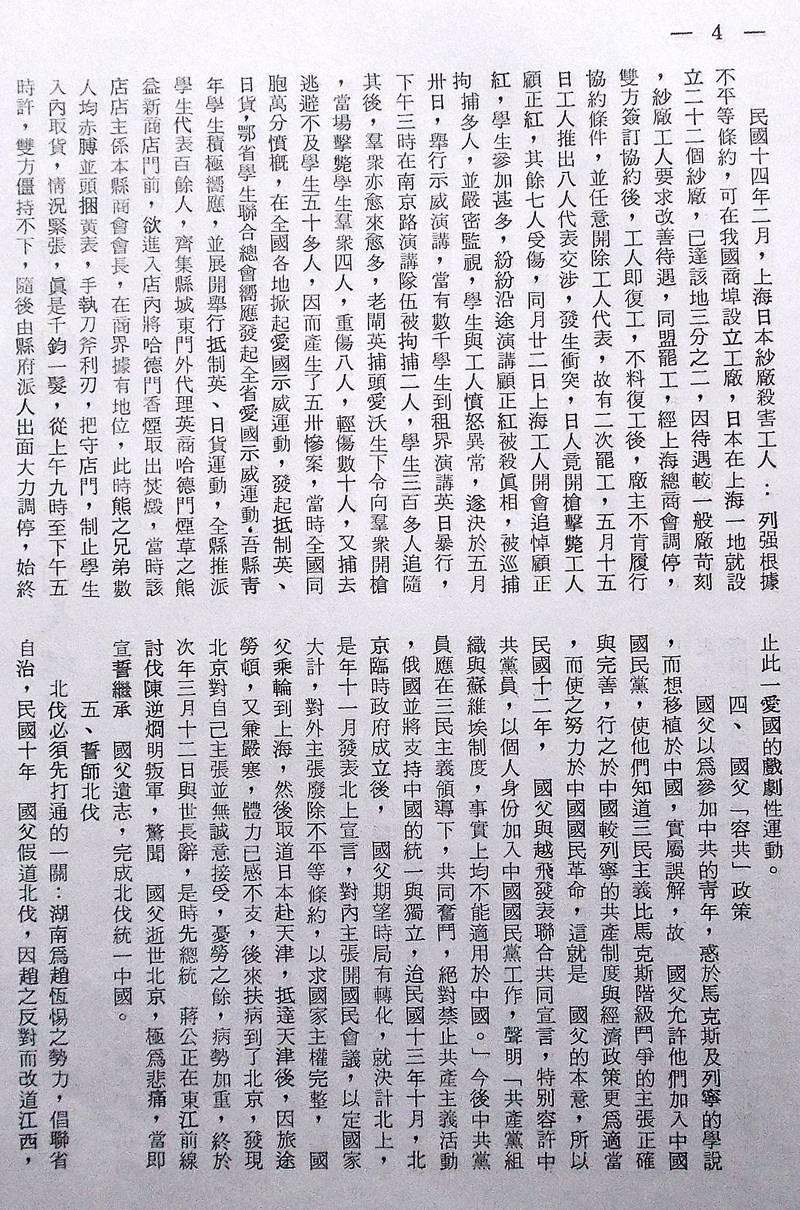 — 4 —
民國十四年二月，上海日本紗廠殺害工人：列强根據
不平等條約，可在我國商埠設立工廠，日本在上海一地就設
立二十二個紗廠，已達該地三分之二，因待遇較一般廠苛刻
，紗廠工人要求改善待遇，同盟罷工，經上海總商會調停，
雙方簽訂協約後，工人即復工，不料復工後，廠主不肯履行
協約條件，並任意開除工人代表，故有二次罷工，五月十五
日工人推出八人代表交涉，發生衝突，日人竟開槍擊斃工人
顧正紅，其餘七人受傷，同月廿二日上海工人開會追悼顧正
紅，學生參加甚多，紛紛沿途演講顧正紅被殺眞相，被巡捕
拘捕多人，並嚴密監視，學生與工人憤怒異常，遂決於五月
卅日，舉行示威演講，當有數千學生到租界演講英日暴行，
下午三時在南京路演講隊伍被拘捕二人，學生三百多人追隨
其後，羣衆亦愈來愈多，老閘英捕頭愛沃生下令向羣衆開槍
，當場擊斃學生羣衆四人，重傷八人，輕傷數十人，又捕去
逃避不及學生五十多人，因而產生了五卅慘案，當時全國同
胞萬分憤慨，在全國各地掀起愛國示威運動，發起抵制英、
日貨，鄂省學生聯合總會嚮應發起全省愛國示威運動．吾縣靑
年學生積極嚮應，並展開舉行抵制英、日貨運動，全縣推派
學生代表百餘人，齊集縣城東門外代理英商哈德門煙草之熊
益新商店門前，欲進入店內將哈德門香煙取出焚燬，當時該
店店主係本縣商會會長，在商界據有地位，此時熊之兄弟數
人均赤膊並頭捆黃表，手執刀斧利刃，把守店門，制止學生
入內取貨，情況緊張，眞是千鈞一髮，從上午九時至下午五
時許，雙方僵持不下，隨後由縣府派人出面大力調停，始終
止此一愛國的戲劇性運動。
四、　國父「容共」政策
國父以爲參加中共的靑年，惑於馬克斯及列寧的學說
，而想移植於中國，實屬誤解，故　國父允許他們加入中國
國民黨，使他們知道三民主義比馬克斯階級鬥爭的主張正確
與完善，行之於中國較列寧的共產制度與經濟政策更爲適當
，而使之努力於中國國民革命，這就是　國父的本意，所以
民國十二年，　國父與越飛發表聯合共同宣言，特别容許中
共黨員，以個人身份加入中國國民黨工作，聲明「共產黨組
織與蘇維埃制度，事實上均不能適用於中國。」今後中共黨
員應在三民主義領導下，共同奮鬥，絕對禁止共產主義活動
，俄國並將支持中國的統一與獨立，迨民國十三年十月，北
京臨時政府成立後，　國父期望時局有轉化，就決計北上，
是年十一月發表北上宣言，對內主張開國民會議，以定國家
大計，對外主張廢除不平等條約，以求國家主權完整，　國
父乘輪到上海，然後取道日本赴天津，抵達天津後，因旅途
勞頓，又兼嚴寒，體力已感不支，後來扶病到了北京，發現
北京對自己主張並無誠意接受，憂勞之餘，病勢加重，終於
次年三月十二日與世長辭，是時先總統　蔣公正在東江前線
討伐陳逆烱明叛軍，驚聞　國父逝世北京，極爲悲痛，當即
宣誓繼承　國父遺志，完成北伐統一中國。
五、誓師北伐
北伐必須先打通的一關：湖南爲趙恆惕之勢力，倡聯省
自治，民國十年　國父假道北伐，因趙之反對而改道江西，